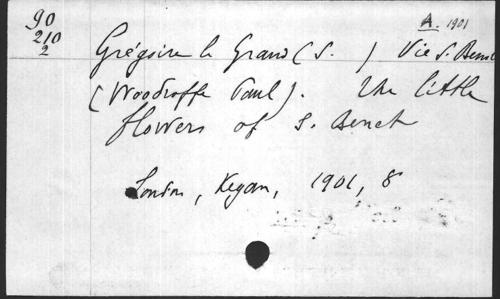 90
210
2
A. 1901
Grégoire le Grand (S. ) Vie S. Benoit
(Woodroffe Paul). The little
flowers of S. Benet
London, Kegan, 1901, 8